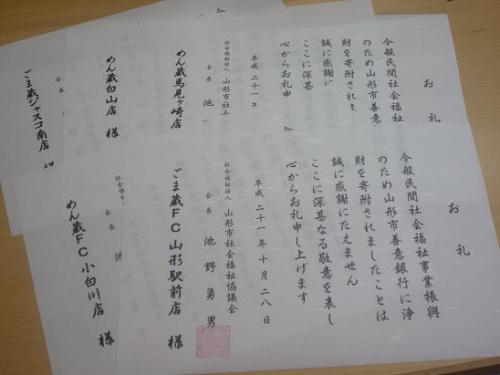 お礼
今般民間社会福祉事業振興
のため山形市善意銀行に浄
財を寄附されましたことは
誠に感謝にたえません
ここに深甚なる敬意を表し
心からお礼申し上げます
平成二十一年十月二八日
社会福祉法人 山形市社会福祉協議会
会長 池野勇男
ごま蔵FC山形駅前店 様
お礼
今般民間社会福祉
のため山形市善意
財を寄附されま
誠に感謝に
ここに深甚
心からお礼申
平成二十一
社会福祉法人 山形市社会
会長 池
めん蔵馬見ヶ崎店
めん蔵白山店 様
会長
ごま蔵ジャスコ南店
社会福祉
会長 池
めん蔵FC小白川店 様